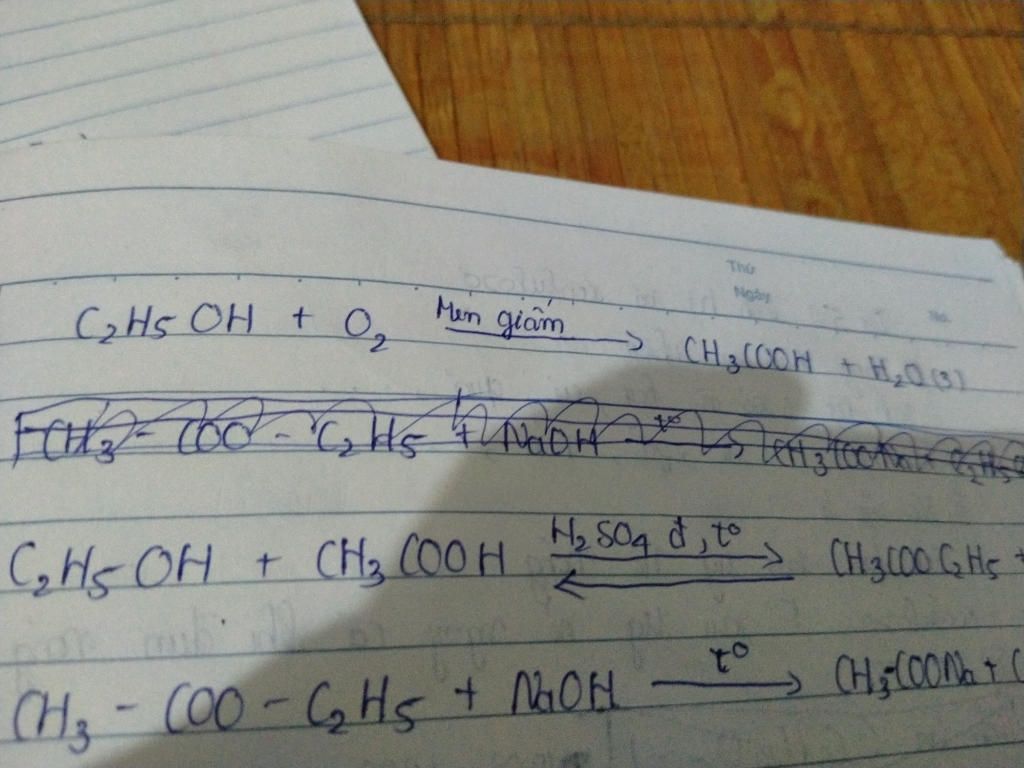 Thứ
Ngày
C2H5OH + O2 Men giấm → CH3COOH + H2O (3)
CH3 - COO - C2H5 + NaOH t° → CH3COONa + C2H5O
C2H5OH + CH3COOH H2SO4 đ, t° ⇌ CH3COOC2H5 +
CH3 - COO - C2H5 + NaOH t° → CH3-COONa + C